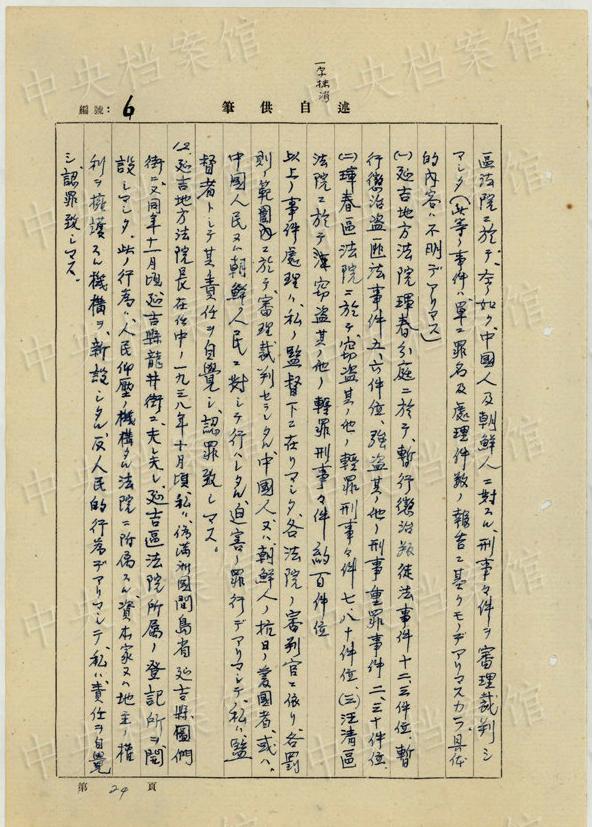 一字抹消
編號: 6
述自供筆
區法院ニ於テ、左ノ如ク、中國人及朝鮮人ニ対スル、刑事々件ヲ審理裁判シ
マシタ(此等ノ事件ハ單ニ罪名及處理件数ノ報告ニ基クモノデアリマスカラ、具体
的内容ハ不明デアリマス)
(一)延吉地方法院琿春分庭ニ於テ、暫行懲治叛徒法事件十二、三件位、暫
行懲治盗匪法事件五、六件位、強盗其ノ他ノ刑事重罪事件二、三十件位、
(二)琿春區法院ニ於テ、窃盗其ノ他ノ輕罪刑事々件七、八十件位、(三)汪清區
法院ニ於テ窃盗其ノ他ノ輕罪刑事々件約百件位
以上ノ事件處理ハ、私ノ監督下ニ在リマシタ、各法院ノ審判官ニ依リ各罰
則ノ範圍內ニ於テ、審理裁判セラレタル、中國人又ハ朝鮮人ノ抗日ノ愛國者、或ハ、
中國人民又ハ朝鮮ノ人民ニ對シテ行ハレタル、迫害ノ罪行デアリマシテ、私ハ監
督者トシテ其ノ責任ヲ自覺シ、認罪致シマス。
(2)、延吉地方法院長在任中ノ一九三八年十月頃、私ハ、偽満洲國間島省延吉縣圖們
街ニ、又同年十一月頃延吉縣龍井街ニ、夫レ夫レ、延吉區法院所属ノ登記所ヲ開
設シマシタ、此ノ行為ハ、人民仰壓ノ機構タル法院ニ附属スル、資本家又ハ地主ノ權
利ヲ擁護スル機構ヲ、新設シタル、反人民的行為デアリマシテ、私ハ責任ヲ自覺
シ、認罪致シマス。
第 24 頁
中央档案馆